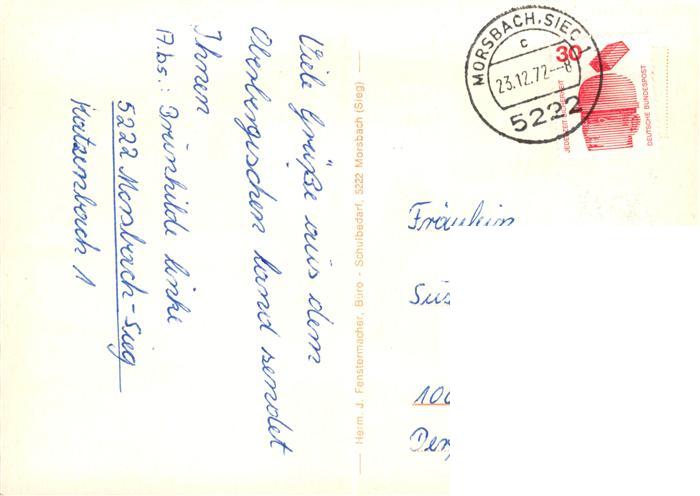 Viele Grüße aus dem
Oberbergischen Land sendet
Ihnen
Brünhilde Linke
5222 Morsbach-Sieg
Katzenbach 1
Herm. J. Fenstermacher, Büro - Schulbedarf, 5222 Morsbach (Sieg)
MORSBACH, SIEG 1
c
23.12.72--8
5222
30
JEDERZEIT SICHERHEIT
DEUTSCHE BUNDESPOST
Fräulein